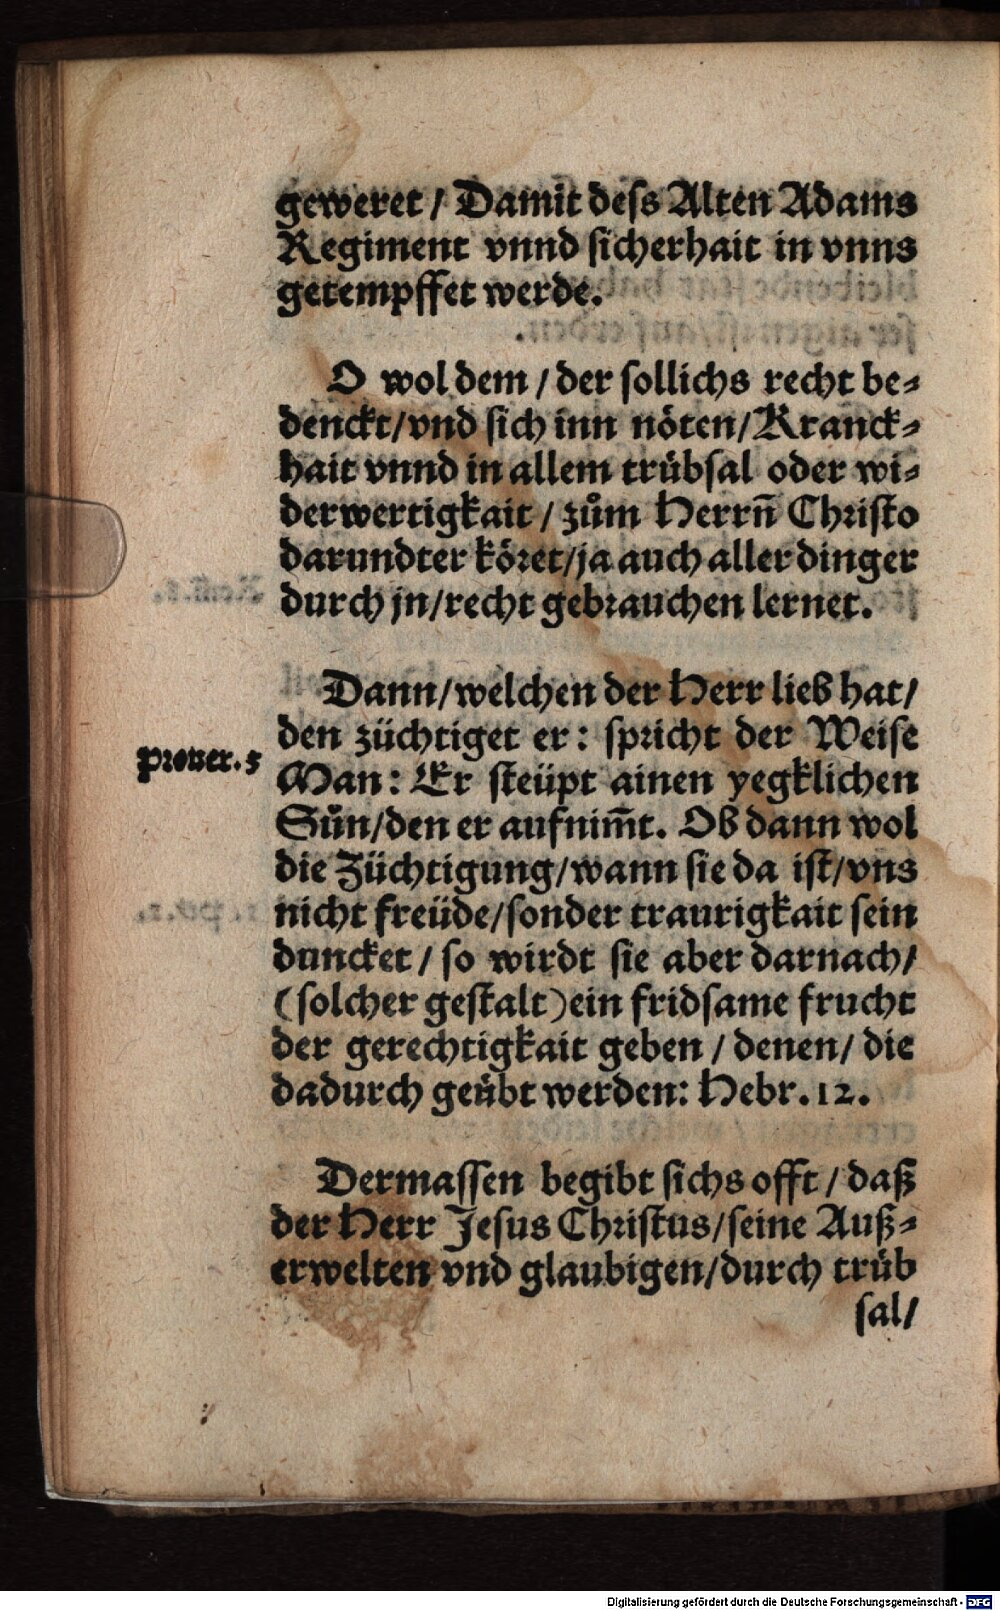 geweret / Damit dess Alten Adams
Regiment vnnd sicherhait in vnns
getempffet werde.
O wol dem / der sollichs recht be⸗
denckt/vnd sich inn nöten/Kranck⸗
hait vnnd in allem trübsal oder wi⸗
derwertigkait / zům Herrn̄ Christo
darundter köret/ja auch aller dinger
durch jn/recht gebrauchen lernet.
Dann/welchen der Herr lieb hat/
den züchtiget er: spricht der Weise
Prouer. 5
Man: Er steüpt ainen yegklichen
Sůn/den er aufnim̄t. Ob dann wol
die Züchtigung/wann sie da ist/vns
nicht freüde/sonder traurigkait sein
duncket / so wirdt sie aber darnach/
(solcher gestalt) ein fridsame frucht
der gerechtigkait geben / denen/ die
dadurch geübt werden: Hebr. 12.
Dermassen begibt sichs offt / daß
der Herr Jesus Christus/seine Auß⸗
erwelten vnd glaubigen/durch trüb
sal/
Digitalisierung gefördert durch die Deutsche Forschungsgemeinschaft - DFG